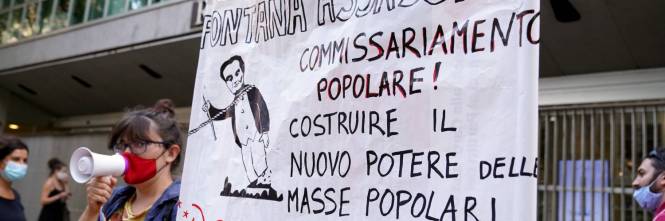 FONTANA ASSASSINO
COMMISSARIAMENTO
POPOLARE!
COSTRUIRE IL
NUOVO POTERE DELLE
MASSE POPOLARI